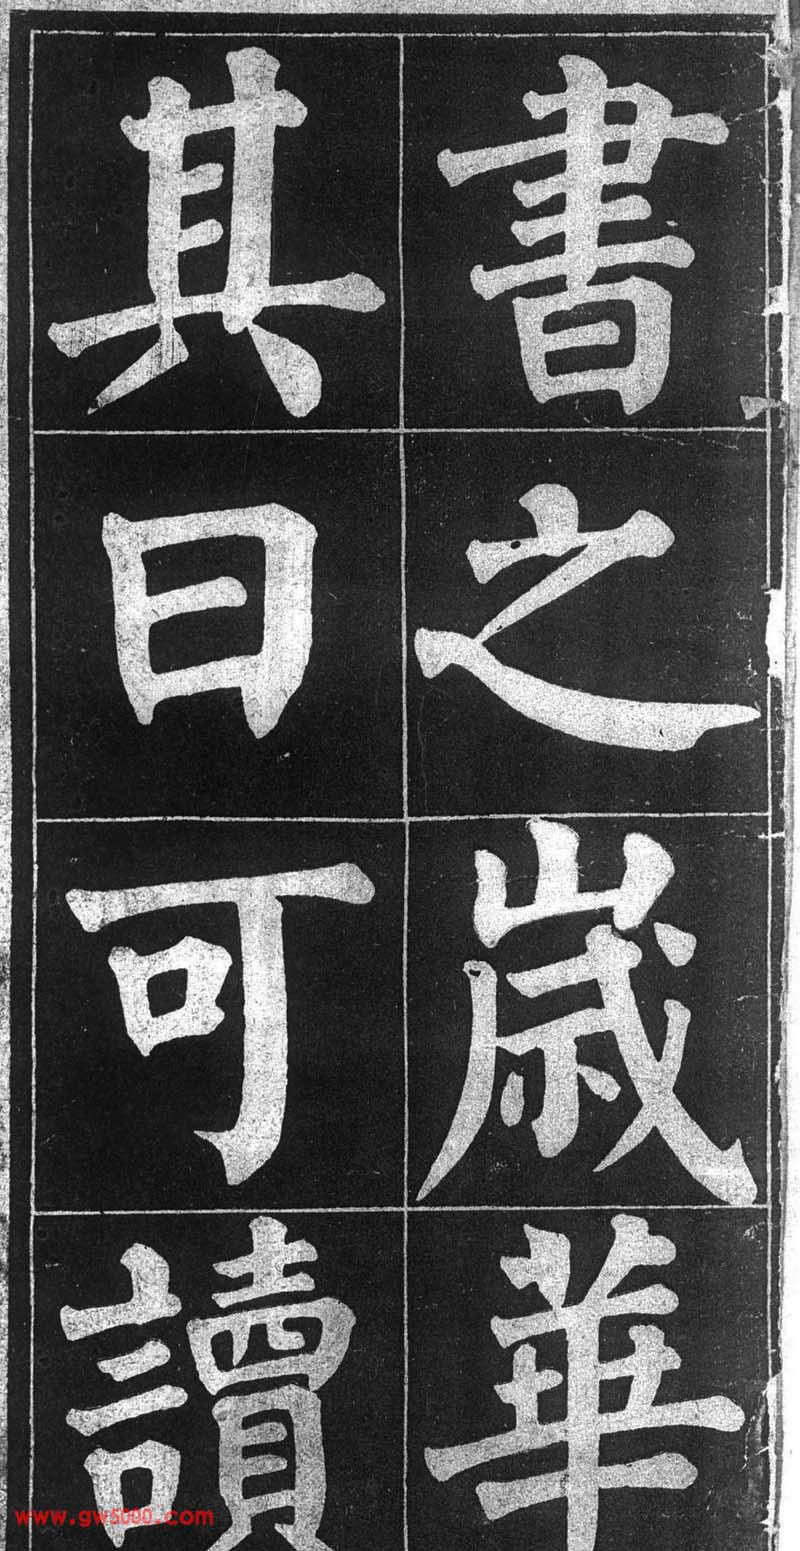 書之歲華
其曰可讀
www.gw5000.com